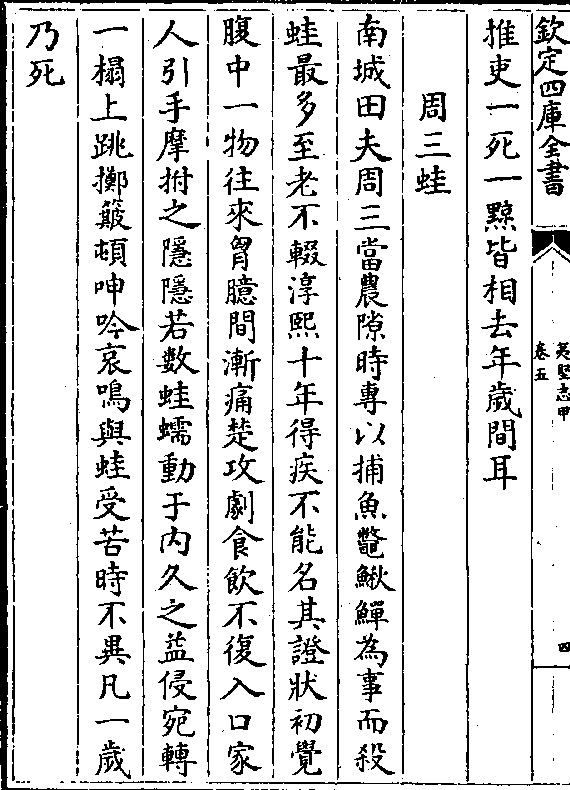 欽定四庫全書
夷堅志甲
卷五
四
推吏一死一黥皆相去年歲間耳
周三蛙
南城田夫周三當農隙時專以捕魚鼈鰍鱓為事而殺
蛙最多至老不輟淳熙十年得疾不能名其證狀初覺
腹中一物往來胷臆間漸痛楚攻劇食飲不復入口家
人引手摩拊之隱隱若數蛙蠕動于内久之益侵宛轉
一榻上跳擲簸頓呻吟哀鳴與蛙受苦時不異凡一歲
乃死